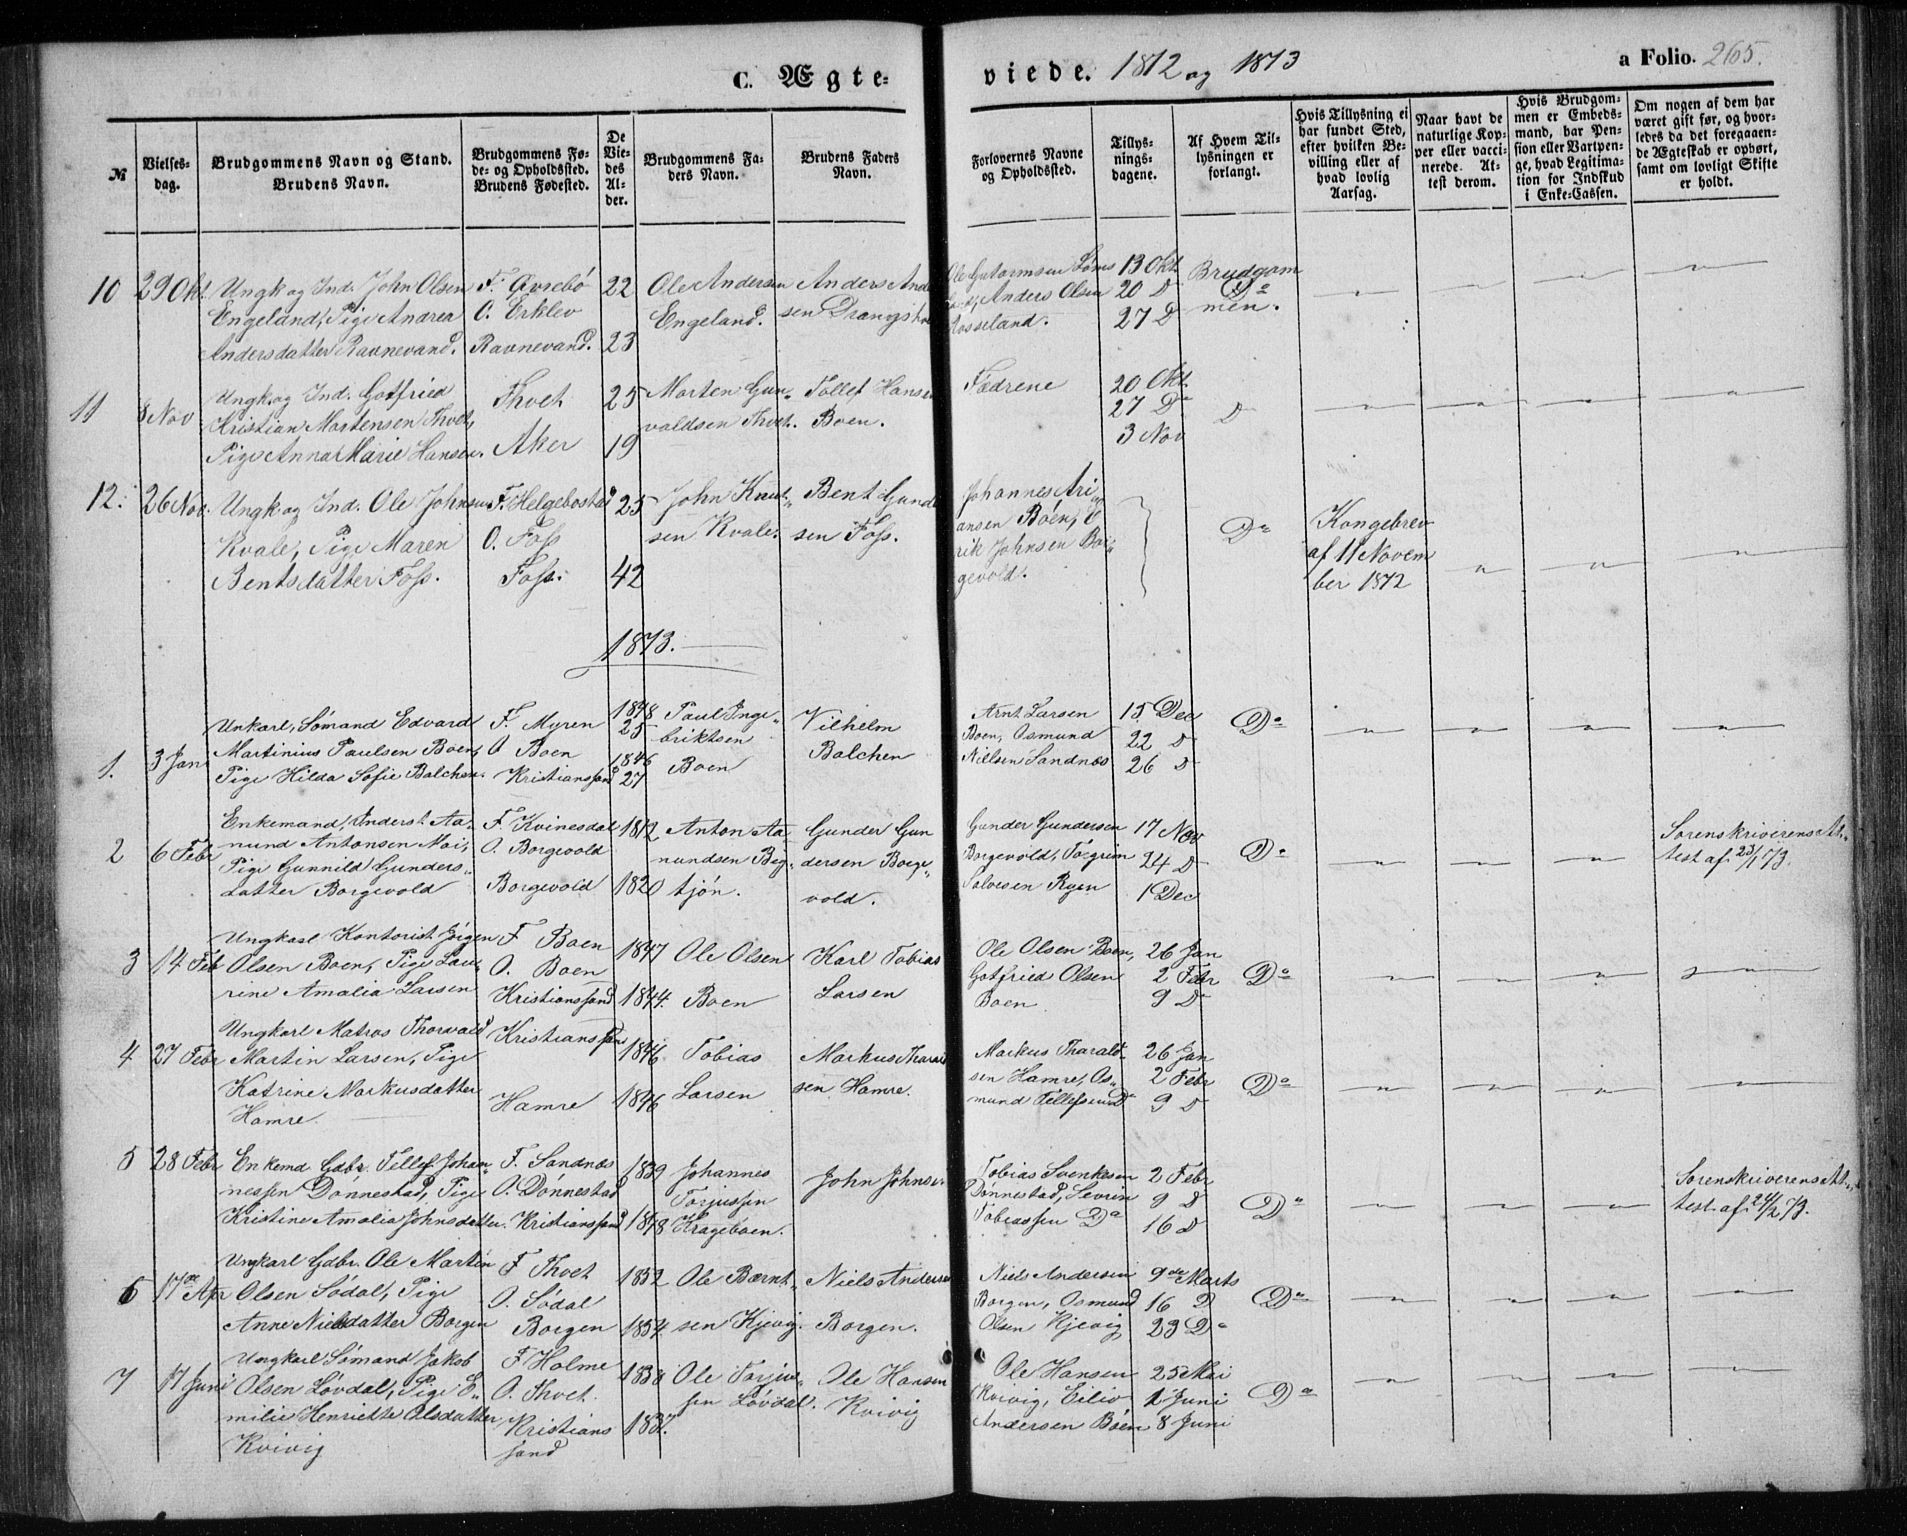 C. Ægte-
viede. 1872 og 1873
a Folio. 265.
№
Vielses-
dag.
Brudgommens Navn og Stand.
Brudens Navn.
Brudgommens Fø-
de- og Opholdssted.
Brudens Fødested.
De
Vie-
des
Al-
der.
Brudgommens Fa-
ders Navn.
Brudens Faders
Navn.
Forlovernes Navne
og Opholdssted.
Tillys-
nings-
dagene.
Af Hvem Til-
lysningen er
forlangt.
Hvis Tillysning ei
har fundet Sted,
efter hvilken Be-
villing eller af
hvad lovlig
Aarsag.
Naar havt de
naturlige Kop-
per eller vacci-
nerede. At-
test derom.
Hvis Brudgom-
men er Embeds-
mand, har Pen-
sion eller Vartpen-
ge, hvad Legitima-
tion for Indskud
i Enke-Cassen.
Om nogen af dem har
været gift før, og hvor-
ledes da det foregaaen-
de Ægteskab er ophørt,
samt om lovligt Skifte
er holdt.
10
29 Okt.
Ungk og Ind. John Olsen
Engeland, Pige Andrea
Andersdatter Ravnevand.
F. Øvrebö
O. Erklev
Ravnevand.
22
23
Ole Andersen
Engeland.
Anders And
sen
Ole Guttormsen
Anders Olsen
Rosseland.
13 Okt.
20 D
27 D
Brudgom
Do
men.
11
8 Nov
Ungk. og Ind. Gotfried
Kristian Mortensen Thvet,
Pige Anna Marie Hansen.
Thvet
Aker
25
19
Morten Gun-
valdsen Thvet.
Tollef Hansen
Boen.
Fædrene
20 Okt.
27 Do
3 Nov
D
12.
26 Nov.
Ungk og Ind. Ole Johnsen
Kvale, Pige Maren
Bentsdatter Foss.
F. Helgebostad
O. Foss
Foss.
25
42
John Knut-
sen Kvale.
Bent Gund
sen Foss.
Johannes Ari
ansen Böen, og E
rik Johnsen Bor-
gevold.
Do
Kongebrev
af 11 Novem
ber 1872
1873.
1.
3 Jan
Unkarl, Sömand Edvard
Martinius Paulsen Boen,
Pige Hilda Sofie Balchen.
F. Myren
O Boen
Kristianssand
1848
25
1846
27
Paul Inge-
briktsen
Boen
Vilhelm
Balchen
Arnt Larsen
Boen, Osmund
Nielsen Sandnæs
15 Dec
22 D
26 D
Do
2
6 Febr
Enkemand, Inderst Aa-
nund Antonsen Moi,
Pige Gunnild Gunders-
datter Borgevold
F. Kvinesdal
O. Borgevold
Borgevold
1812
1820
Anton Aa
nundsen Beg-
tjön.
Gunder Gun
dersen Borge-
vold.
Gunder Gundersen
Borgevold, Torgrim
Salvesen Ryen
17 Nov
24 D
1 Dec
Do
Sorenskriverens At-
test af 23/1 73.
3
14 Feb
Ungkarl Kontorist Jörgen
Olsen Boen, Pige Lau-
rine Amalia Larsen
F Boen
O. Boen
Kristianssand
1847
1844.
Ole Olsen
Boen
Karl Tobias
Larsen
Ole Olsen Boen,
Gotfried Olsen
Boen
26 Jan
2 Febr
9 D
Do
4
27 Febr
Ungkarl Matros Thorvald
Martin Larsen, Pige
Katrine Markusdatter
Hamre
Kristianssand
Hamre
1846
1846
Tobias
Larsen
Markus Tharald
sen Hamre.
Markus Tharald-
sen Hamre, Os-
mund Tellefsen D
26 Jan
2 Febr
9 D
Do
5
28 Febr
Enkemd Gdbr. Tellef Johan-
nessen Dönnestad, Pige
Kristine Amalia Johnsdatter.
F. Sandnæs
O. Dönnestad
Kristianssand
1839
1848
Johannes
Torjussen
Krageboen.
John Johnsen
Tobias Svenkesen
Dönnestad, Sevrin
Tobiassen Do
2 Febr
9 D
16 D
Do
Sorenskriverens At-
test af 24/2 73.
6
17de Apr
Ungkarl Gdbr. Ole Martin
Olsen Södal, Pige
Anne Nielsdatter Borgen
F Thvet
O. Södal
Borgen
1852
1854
Ole Bærnt-
sen Kjevig.
Niels Andersen
Borgen.
Niels Andersen
Borgen, Osmund
Olsen Kjevig
9de Marts
16 D
23 Do
Do
7
17 Juni
Ungkarl Sömand Jakob
Olsen Lövdal, Pige E-
milie Henriette Olsdatter
Kvivig
F Holme
O. Thvet.
Kristians
sand
1837.
Ole Torjus-
sen Lövdal.
Ole Hansen
Kvivig
Ole Hansen
Kvivig, Eiliv
Andersen Böen
25 Mai
1 Juni
8 Juni
Do